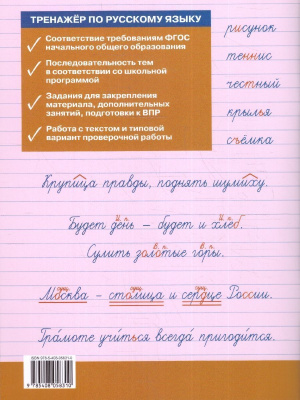 ТРЕНАЖЁР ПО РУССКОМУ ЯЗЫКУ
✓ Соответствие требованиям ФГОС
начального общего образования
✓ Последовательность тем
в соответствии со школьной
программой
✓ Задания для закрепления
материала, дополнительных
занятий, подготовки к ВПР
✓ Работа с текстом и типовой
вариант проверочной работы
рисунок
теннис
честный
крылья
съёмка
Крупица правды, поднять шумиху.
И.п. В.п.
Будет день – будет и хлеб.
В.п.
Сулить золотые горы.
сущ. сущ. сущ.
Москва – столица и сердце России.
Грамоте учиться всегда пригодится.